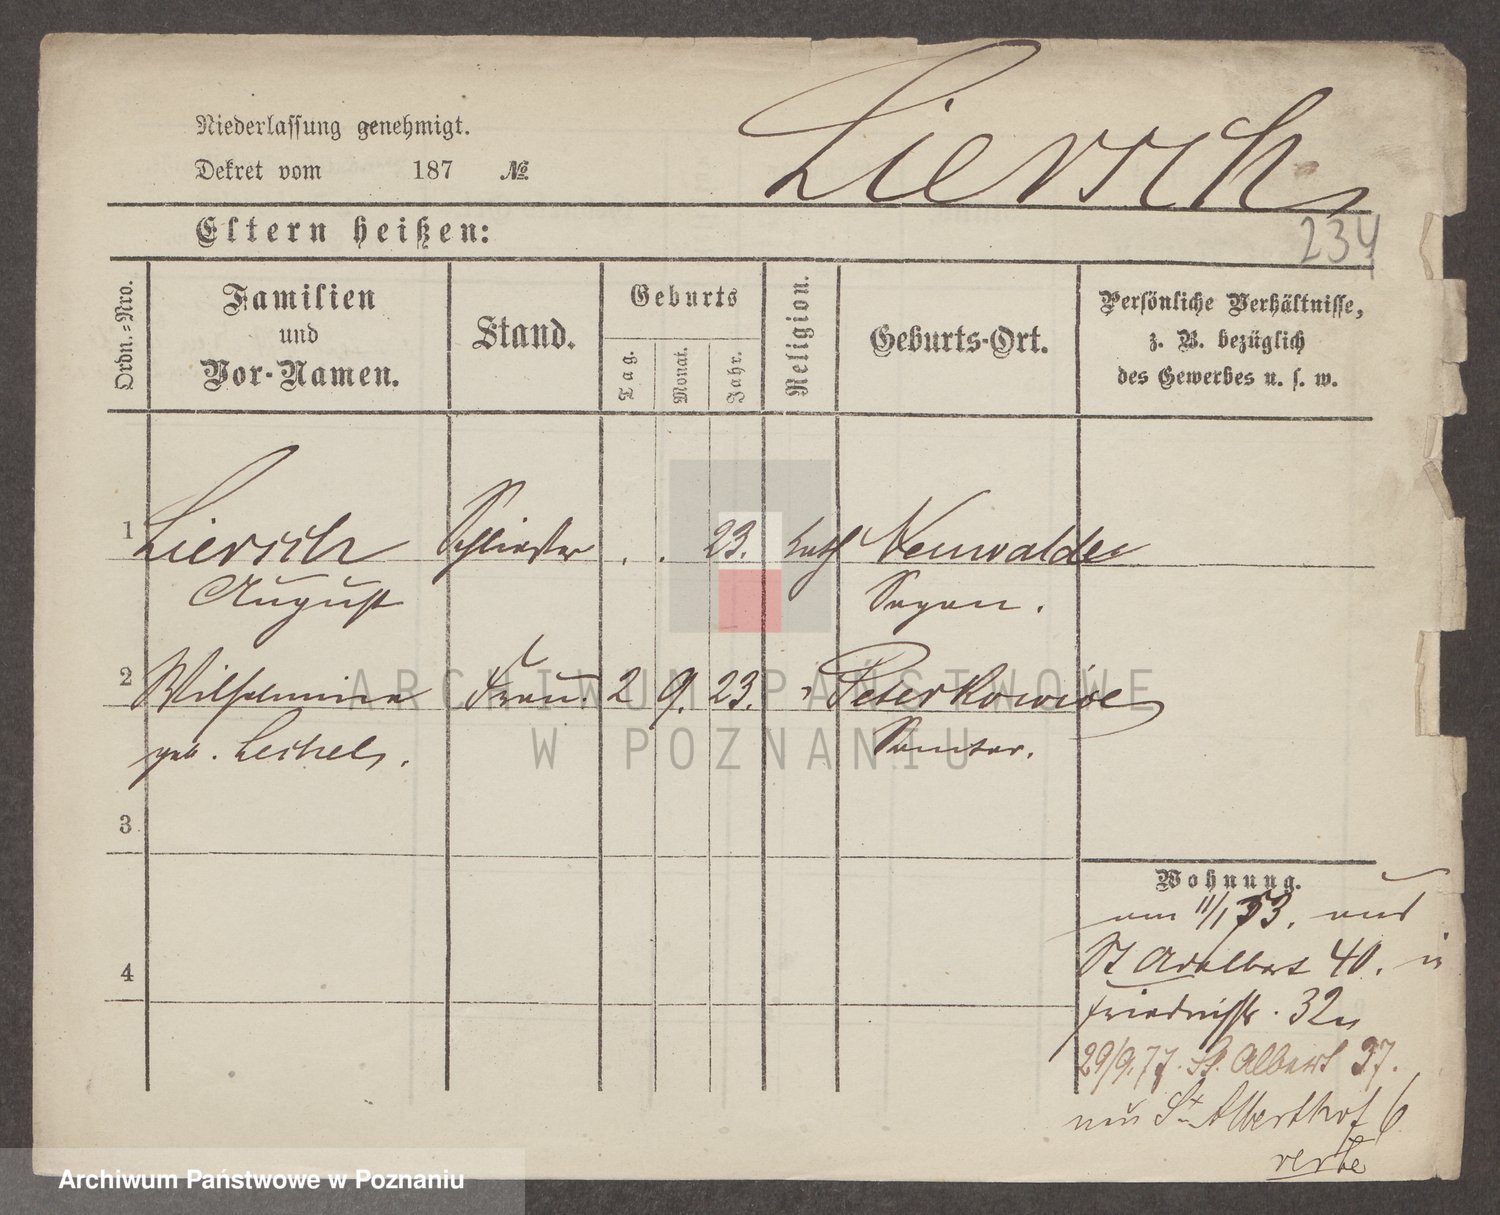 Liersch
Niederlassung genehmigt.
Dekret vom 187 №
234
Eltern heißen:
Ordn.=Nro.
Familien
und
Vor-Namen.
Stand.
Geburts
Tag.
Monat.
Jahr.
Religion.
Geburts-Ort.
Persönliche Verhältnisse,
z. B. bezüglich
des Gewerbes u. s. w.
1 Liersch . . 23. kath Neuwalde
August Sagan.
2 Wilhelmine Frau. 2 9. 23. " Peterkowice
geb. Samter.
3
4
Wohnung.
am 11/1 73. aus
St Adalbert 40. in
Friedrichstr. 32
29/9.77. St. Albert 37.
St Alberthof 6
verte
ARCHIWUM PAŃSTWOWE
W POZNANIU
Archiwum Państwowe w Poznaniu